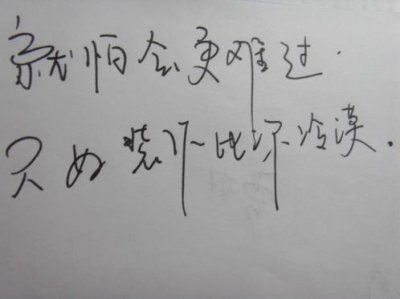 就怕会更难过.
只如装作比你冷漠.